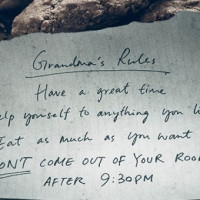 Grandma's Rules
Have a great time
elp yourself to anything you li
Eat as much as you want
ON'T COME OUT OF YOUR ROO
AFTER 9:30PM